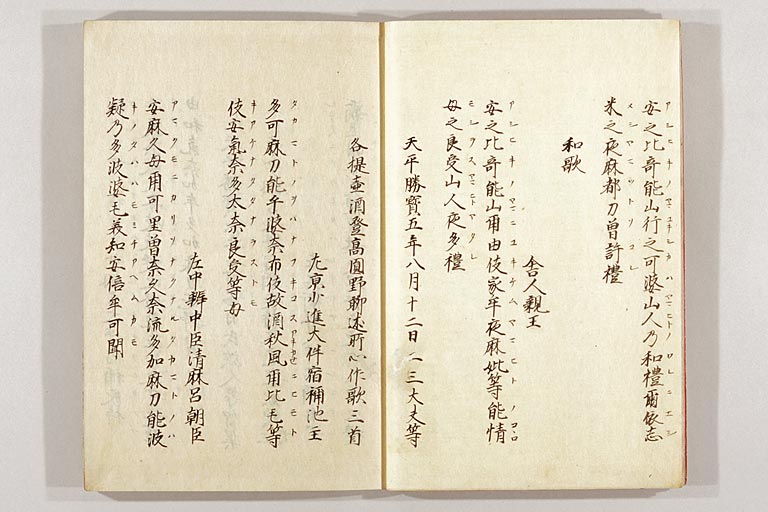 安之比奇能山行之可婆山人乃和禮爾依志
米之夜麻都刀曽許禮
和歌
舎人親王
安之比奇能山爾由伎家牟夜麻妣等能情
母之良受山人夜多禮
天平勝寶五年八月十二日二三大夫等
各提壷酒登高圓野聊述所心作歌三首
左京少進大伴宿祢池主
多可麻刀能乎婆奈布伎故酒秋風爾比毛等
伎安氣奈多太奈良受等母
左中辨中臣清麻呂朝臣
安麻久母爾可里曽奈久奈流多加麻刀能波
疑乃多波婆毛美知安倍牟可聞